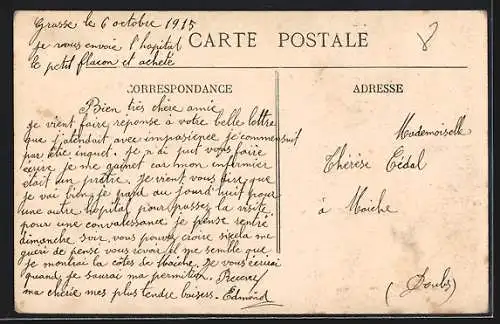 Grasse le 6 octobre 1915
je vous envoie l'hopital
le petit flacon et acheté
CARTE POSTALE
CORRESPONDANCE
ADRESSE
Bien très chère amie
je vient faire réponse à votre belle lettre
que j'atendait avec impasience je commensait
par etre inquet. Je n'ai put vous faire
écrire je me gainet car mon infirmier
était un pretre. Je vient vous dire que
je vai bien je pard au jourd huit pour
une autre hopital pour passez la visite
pour une convalessance je pense rentré
dimanche soir, vous pouvez croire si cela me
gueri de pensé vous revoir il me semble que
je montrai la côtes de Maiche. Je vous écrirai
quand je saurai ma permition. Recevez
ma chérie mes plus tendre baisers. Edmond
Mademoiselle
Thérèse Cédal
à Maiche
(Doubs)